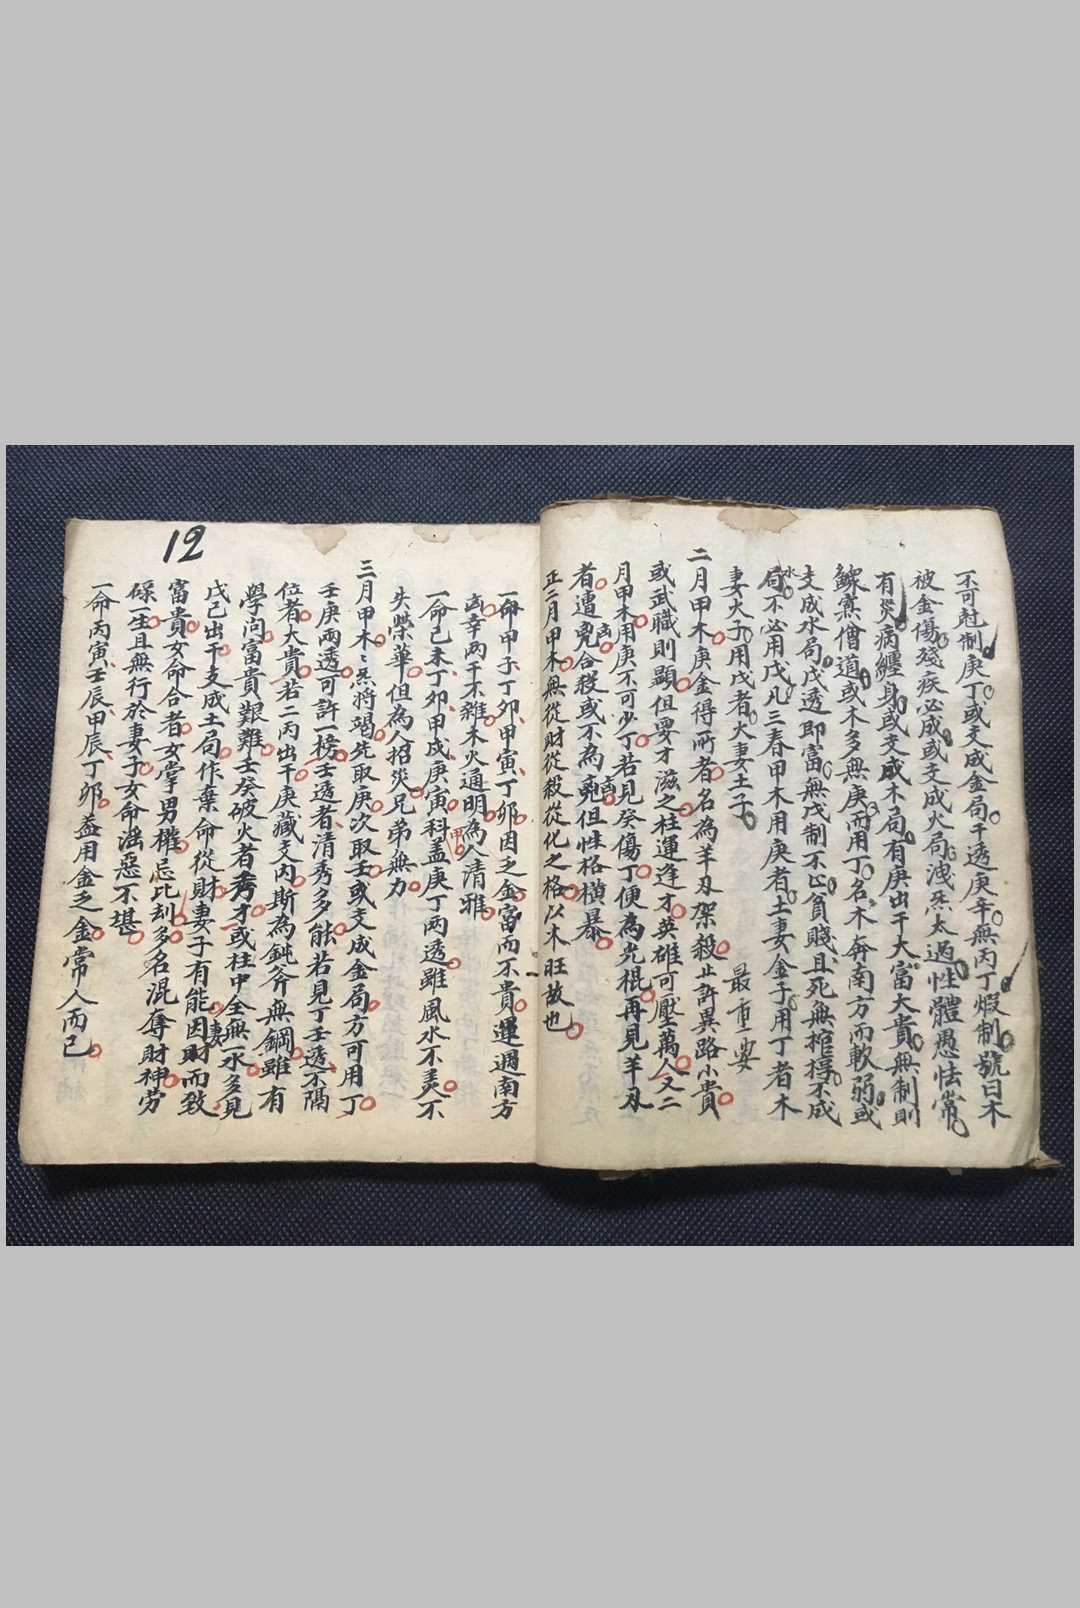 不可尅制庚丁或支成金局干透庚辛無丙丁煆制號曰木
被金傷殘疾必成或支成火局洩炁太過性體愚怯常
有災病纏身或支成木局有庚出干大富大貴無制則
鰥寡僧道或木多無庚而用丁名木奔南方而軟弱或
支成水局戊透即富無戊制不止貧賤且死無棺槨不成
水局不必用戊凡三春甲木用庚者土妻金子用丁者木
妻火子用戊者火妻土子 最重要
二月甲木庚金得所者名為羊刃架殺止許異路小貴
或武職則顯但要才滋之柱運逢才英雄可壓萬人又二
月甲木用庚不可少丁若見癸傷丁便為光棍再見羊刃
者遭兇合殺或不為兇但性格橫暴
正二月甲木無從財從殺從化之格以木旺故也
一命甲子丁卯甲寅丁卯因乏金富而不貴運週南方
幸兩干不雜木火通明為人清雅
一命己未丁卯甲戌庚寅科甲蓋庚丁兩透雖風水不灵不
失榮華但為人招災兄弟無力
三月甲木炁將竭先取庚次取壬或支成金局方可用丁
壬庚兩透可許一榜壬透者清秀多能若見丁壬透不隅
位者大貴若二丙出干庚藏支內斯為鈍斧無鋼雖有
學问富貴艱難壬癸破火者秀才或柱中全無一水多見
戊己出干支成土局作棄命從財妻子有能因妻財而致
富貴女命合者女掌男權忌比刦多名混奪財神劳
碌一生且無行於妻子女命滛惡不堪
一命丙寅壬辰甲辰丁卯盖用金乏金常人而已
12